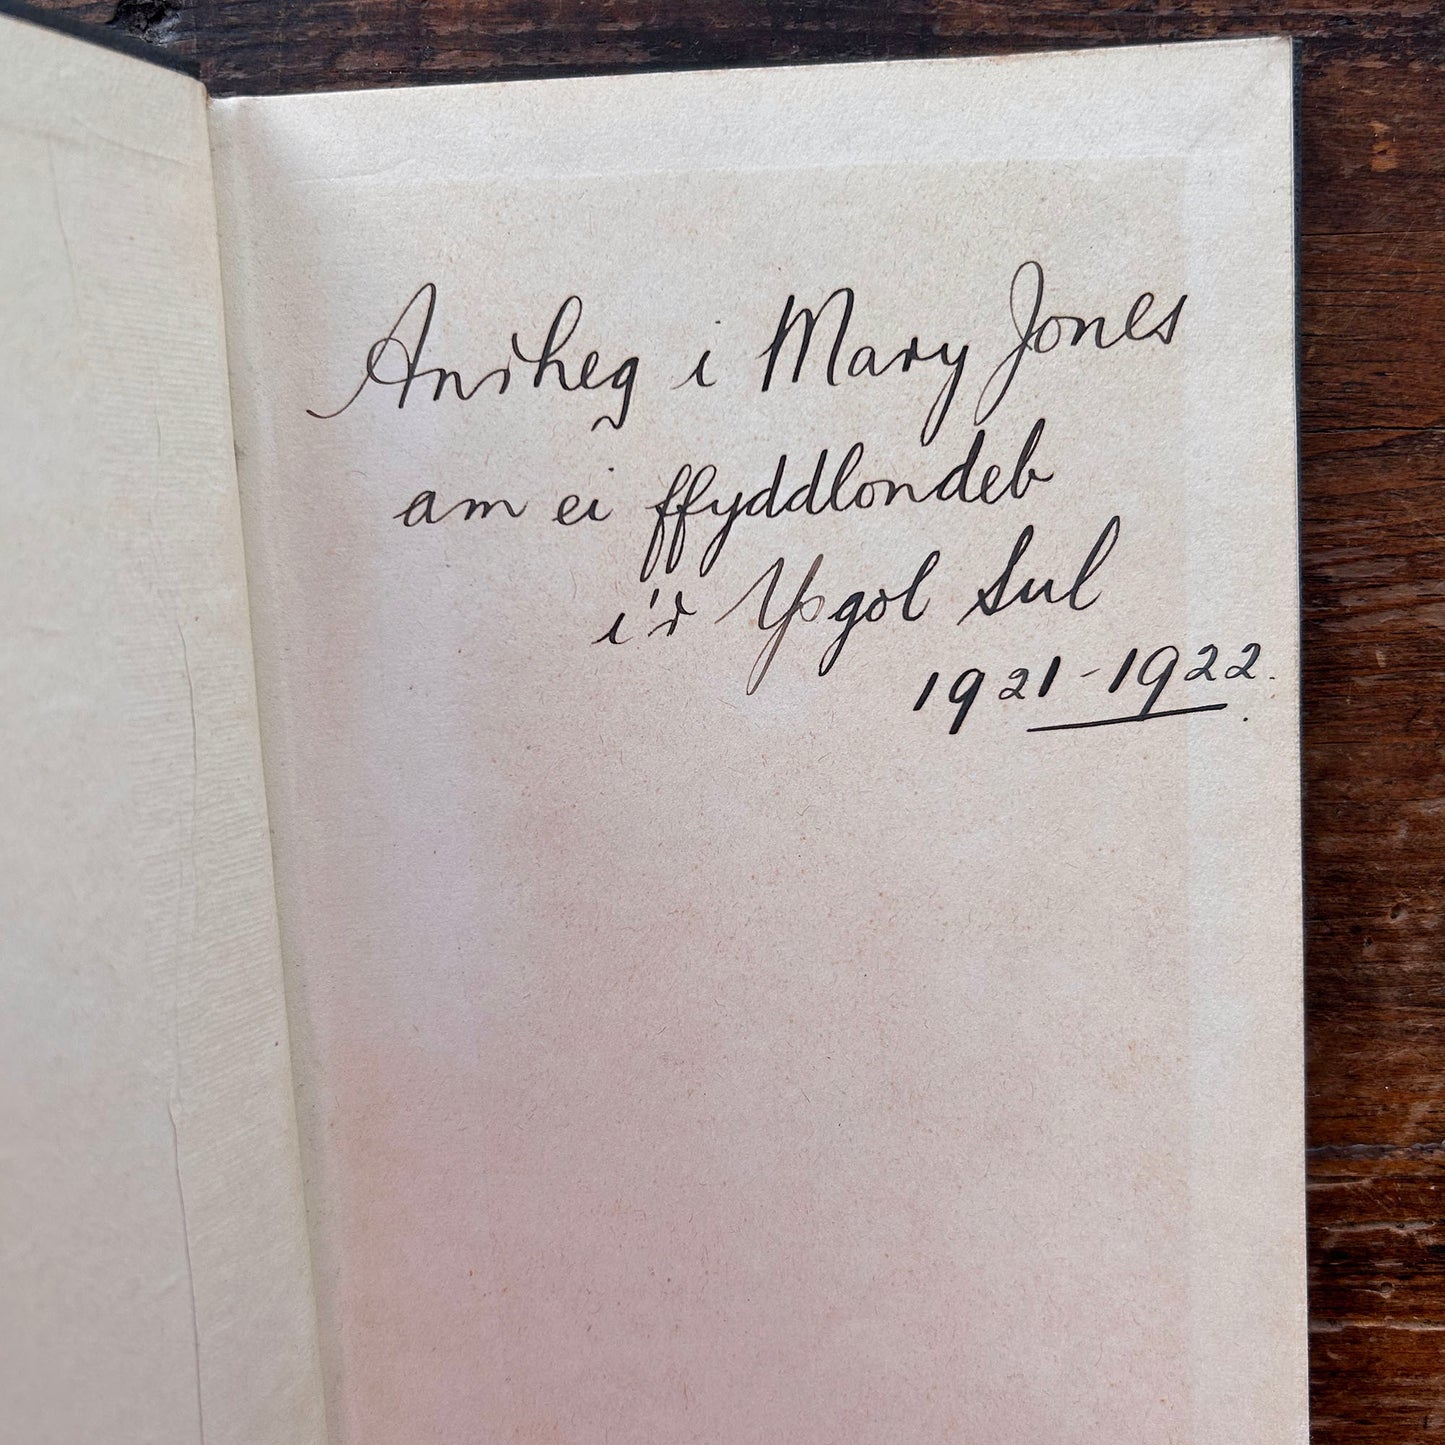 Anrheg i Mary Jones
am ei ffyddlondeb
i'r Ysgol Sul
1921-1922.